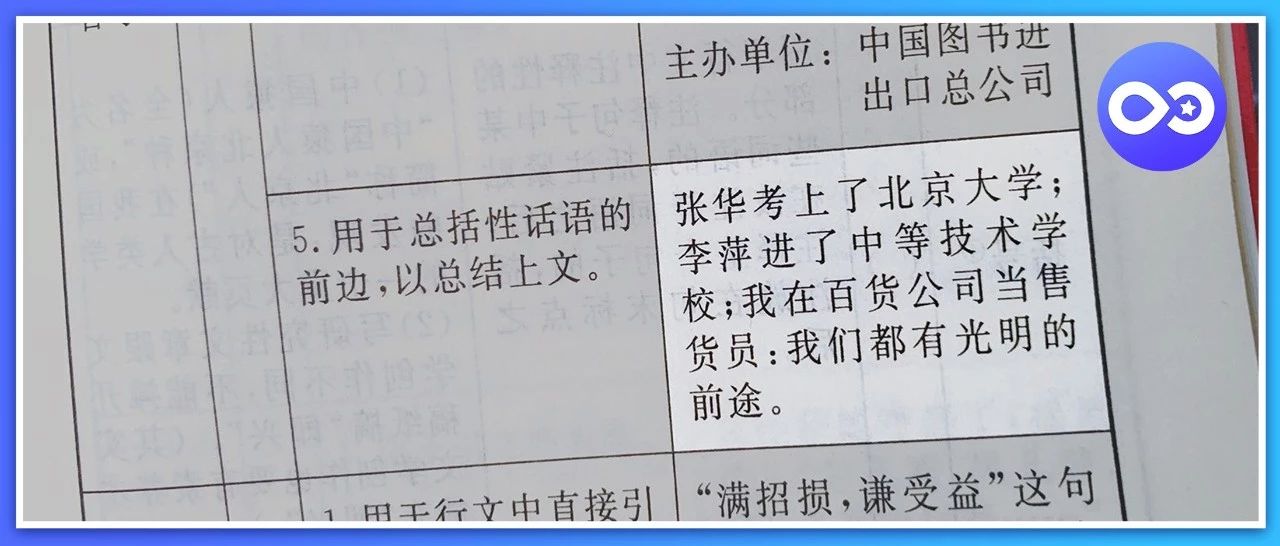 主办单位：中国图书进
出口总公司
5.用于总括性话语的
前边，以总结上文。
张华考上了北京大学；
李萍进了中等技术学
校；我在百货公司当售
货员：我们都有光明的
前途。
1.用于行文中直接引
“满招损，谦受益”这句